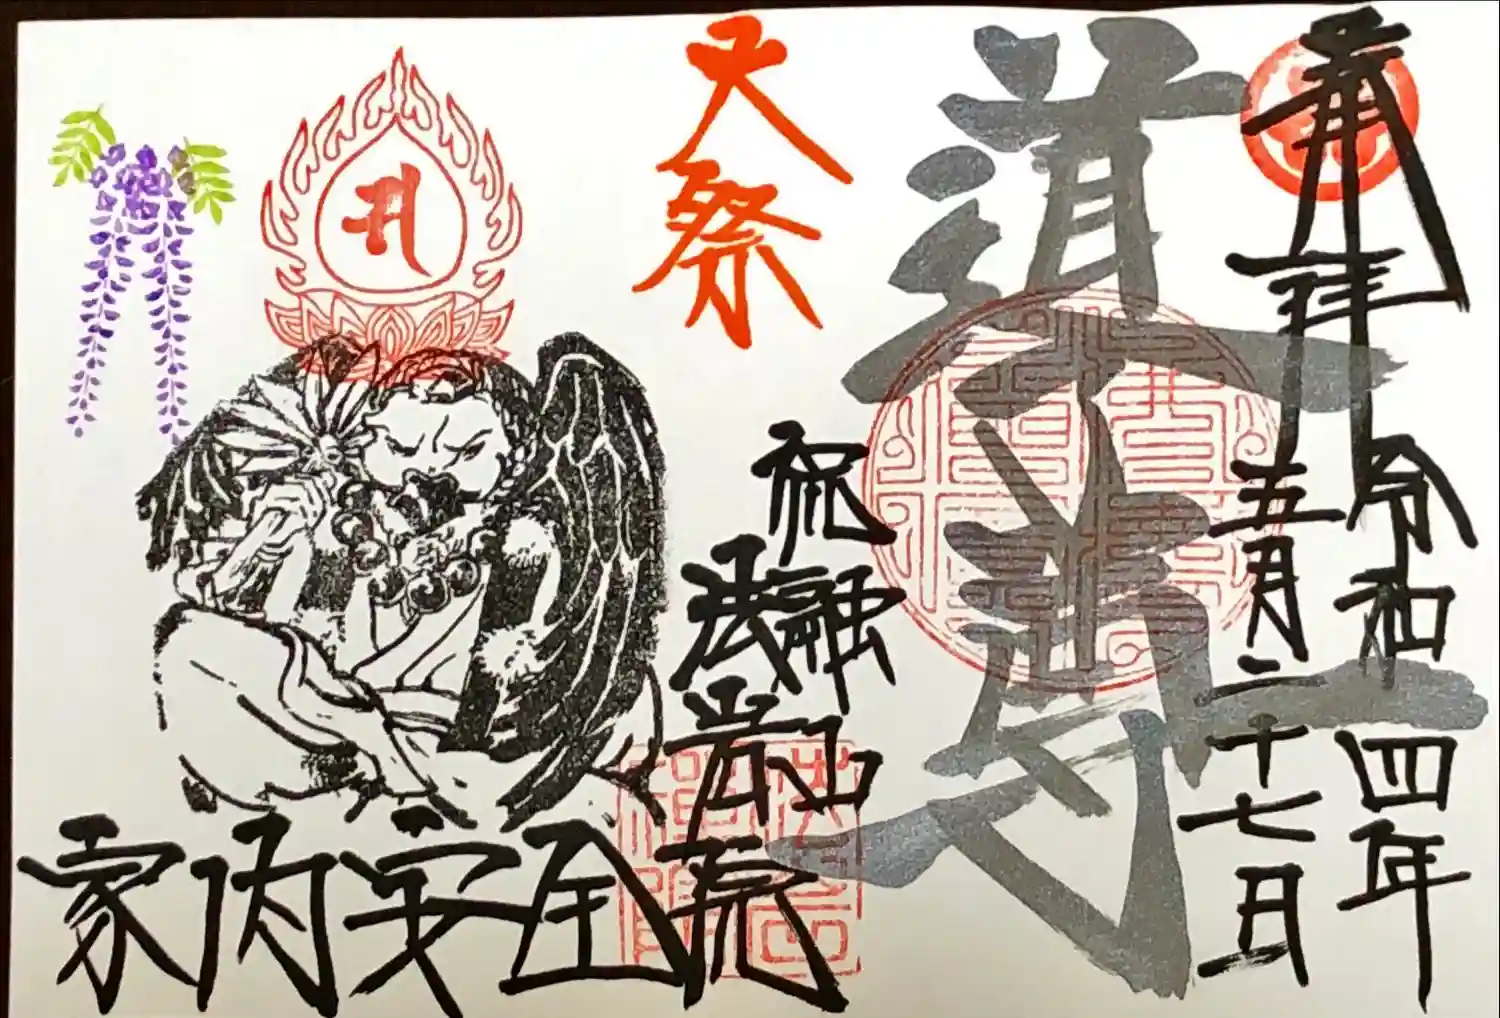 奉拝
令和四年
五月二十七日
道了尊
大祭
祝融山
院
家内安全